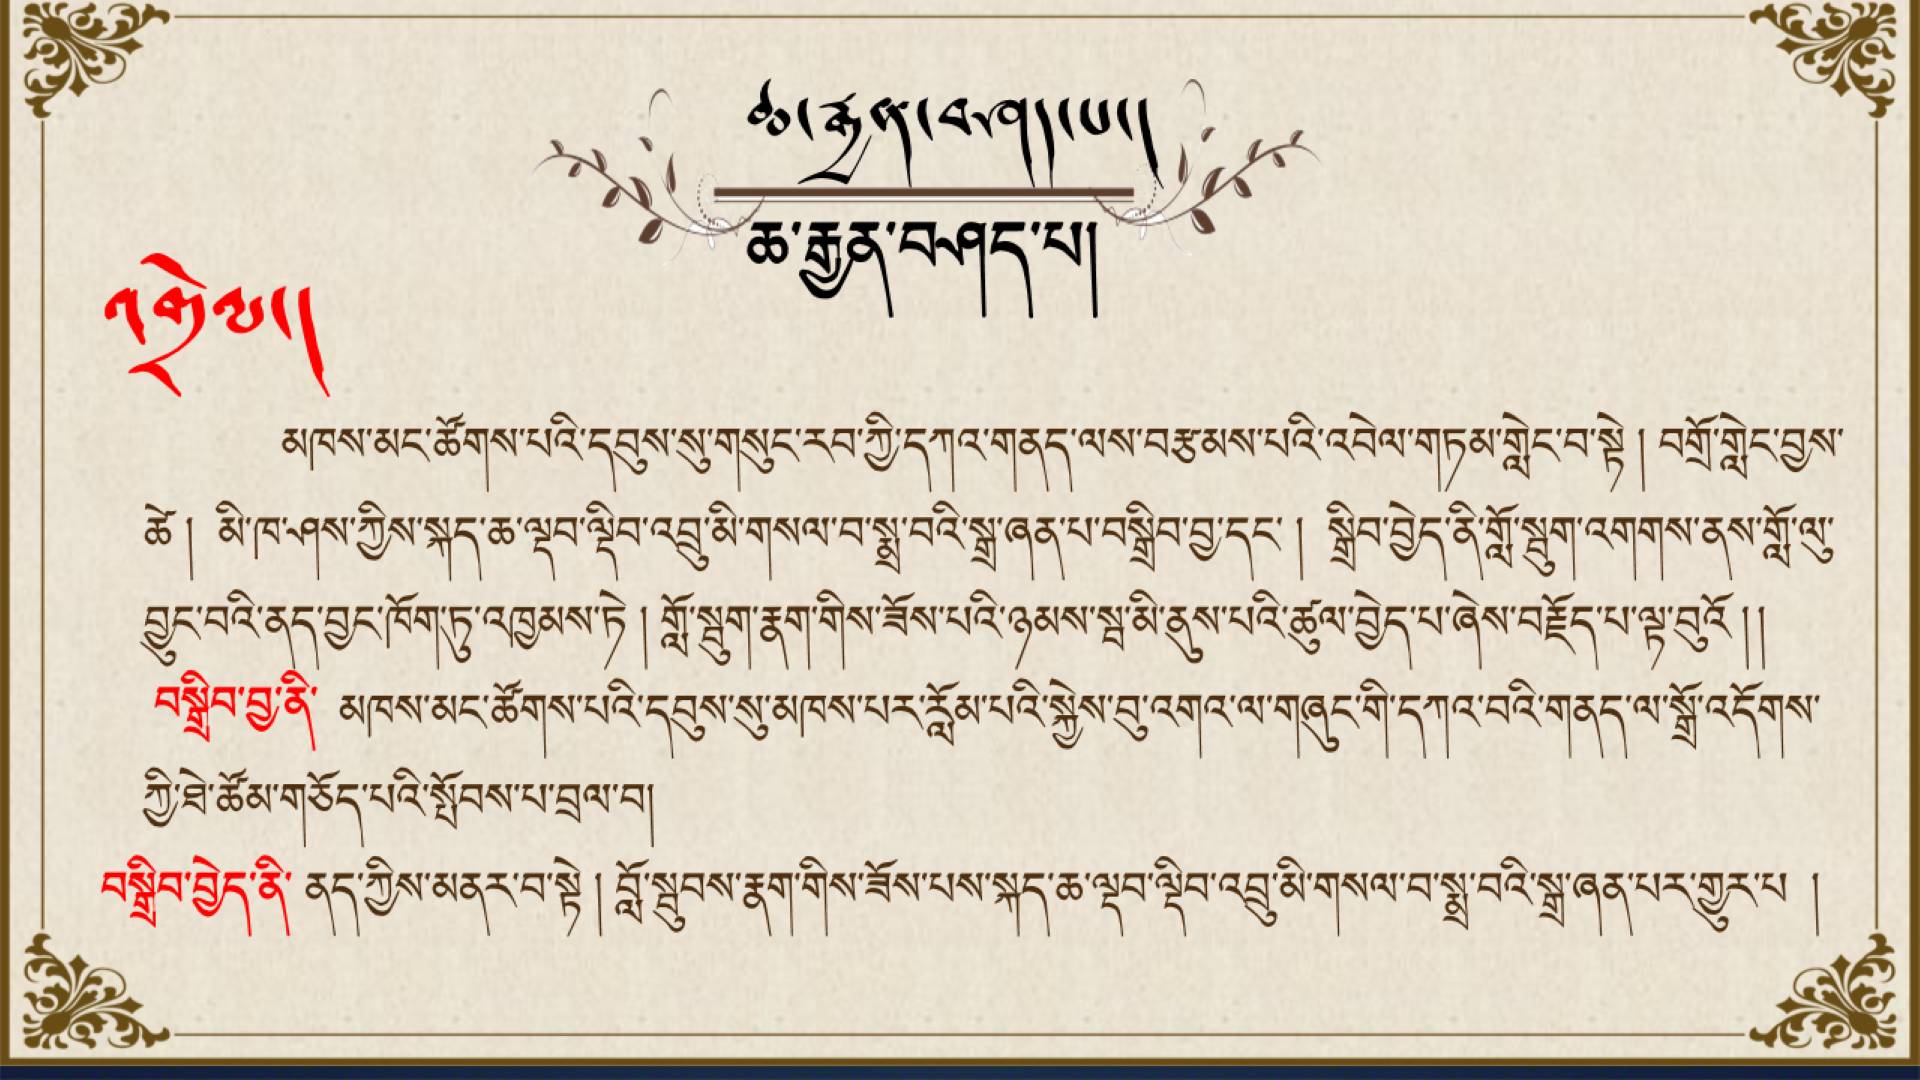 ཆ་རྐྱན་བཤད་པ།
ཆ་རྐྱན་བཤད་པ།
འགྲེལ།
མཁས་མང་ཚོགས་པའི་དབུས་སུ་གསུང་རབ་ཀྱི་དཀའ་གནད་ལས་བརྩམས་པའི་འབེལ་གཏམ་གླེང་བ་སྟེ། བགྲོ་གླེང་བྱས་
ཚེ། མི་ཁ་ཤས་ཀྱིས་སྐད་ཆ་ལྡབ་ལྡིབ་འབྲུ་མི་གསལ་བ་སྨྲ་བའི་སྒྲ་ཞན་པ་བསྒྲིབ་བྱ་དང་། སྒྲིབ་བྱེད་ནི་གློ་སྦུག་འགགས་ནས་གློ་ལུ་
བྱུང་བའི་ནད་བྱང་ཁོག་ཏུ་འཁྱམས་ཏེ། གློ་སྦུག་རྣག་གིས་ཟོས་པའི་ཉམས་སྦ་མི་ནུས་པའི་ཚུལ་བྱེད་པ་ཞེས་བརྗོད་པ་ལྟ་བུའོ།།
བསྒྲིབ་བྱ་ནི་ མཁས་མང་ཚོགས་པའི་དབུས་སུ་མཁས་པར་རློམ་པའི་སྐྱེས་བུ་འགའ་ལ་གཞུང་གི་དཀའ་བའི་གནད་ལ་སྒྲོ་འདོགས་
ཀྱི་ཐེ་ཚོམ་གཅོད་པའི་སྤོབས་པ་བྲལ་བ།
བསྒྲིབ་བྱེད་ནི་ ནད་ཀྱིས་མནར་བ་སྟེ། བློ་སྦུབས་རྣག་གིས་ཟོས་པས་སྐད་ཆ་ལྡབ་ལྡིབ་འབྲུ་མི་གསལ་བ་སྨྲ་བའི་སྒྲ་ཞན་པར་གྱུར་པ །